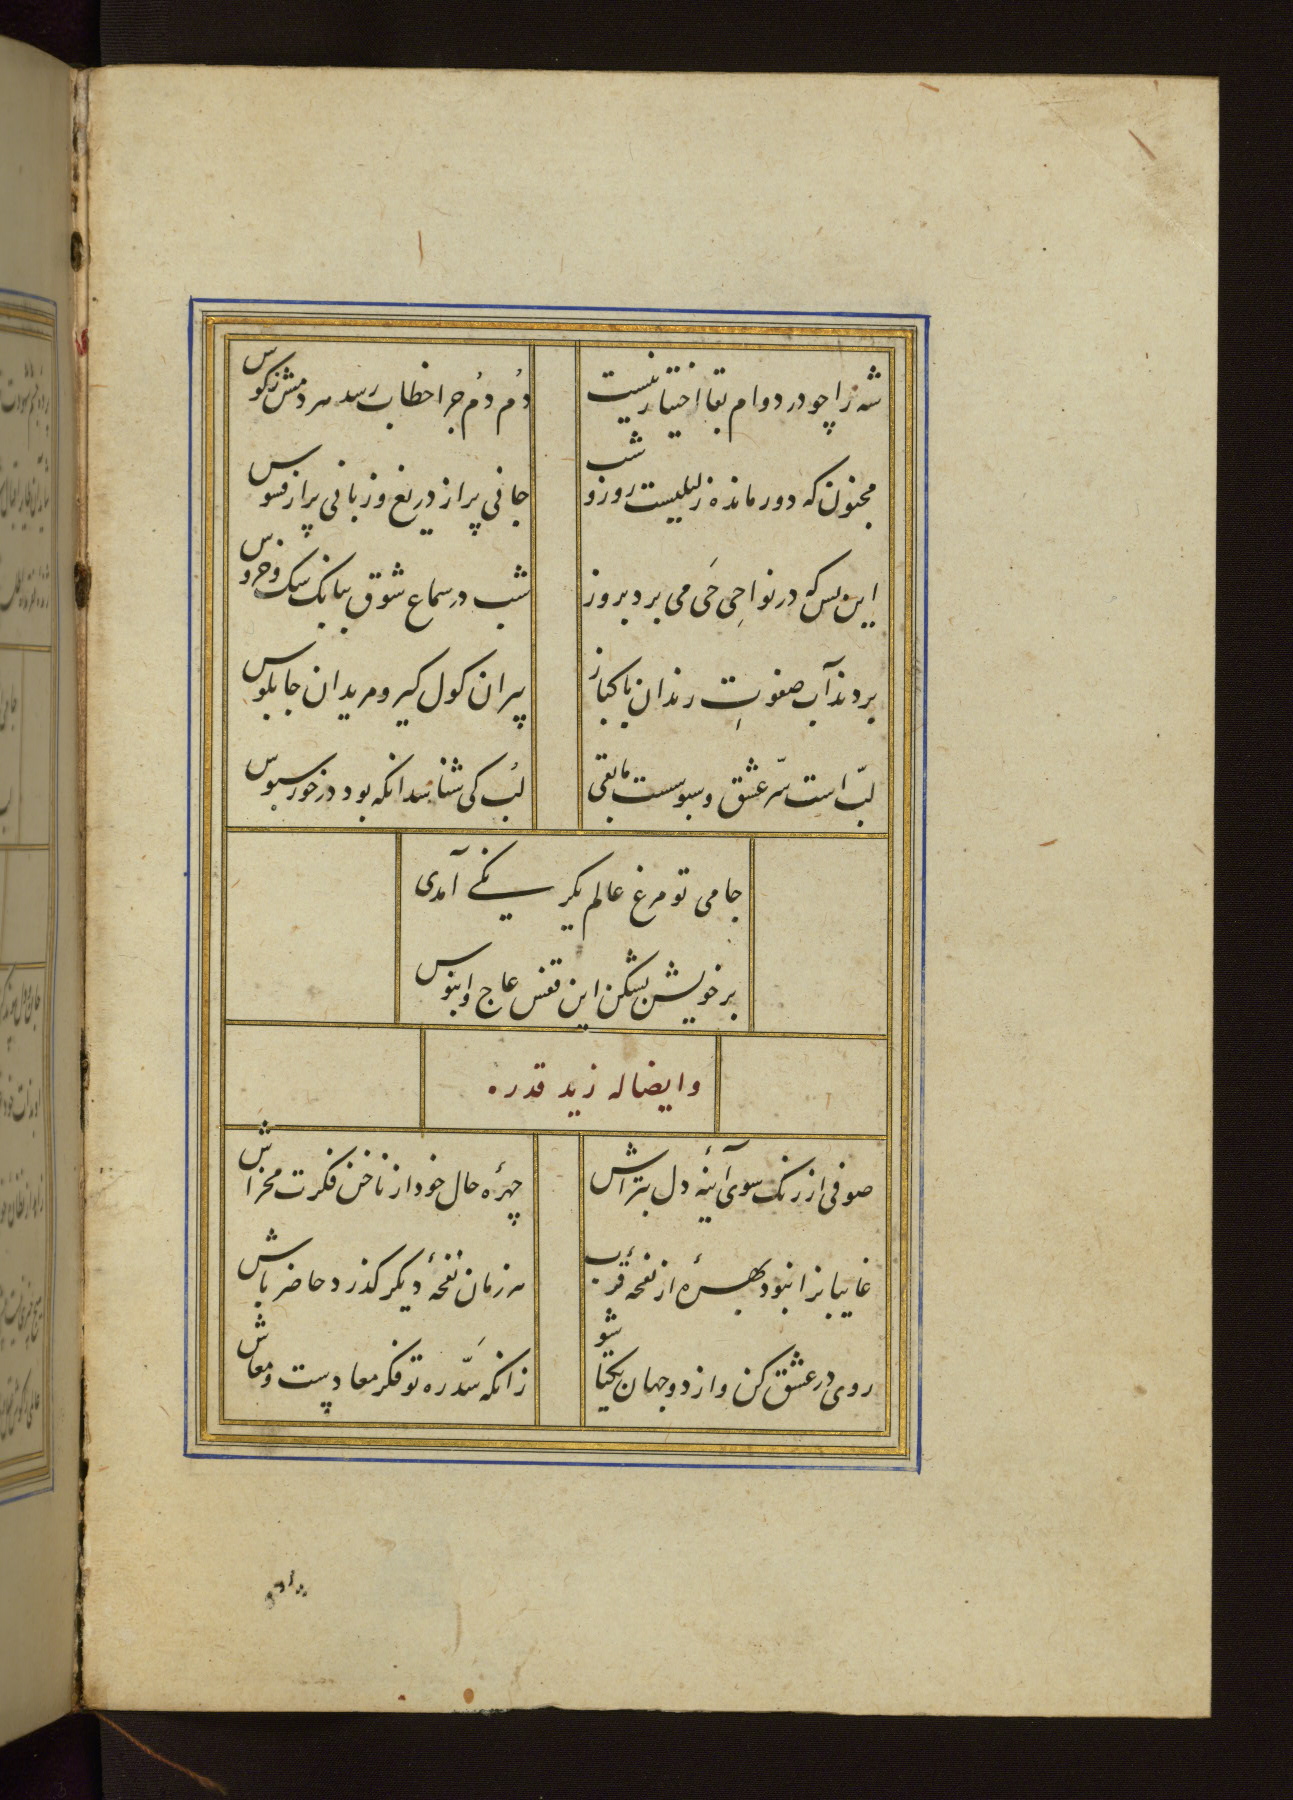 شه را چو در دوام بقا اختیار نیست
دُم دُم چرا خطاب رسد هر دمش ز کوس
مجنون که دور مانده ز لیلیست روز و شب
جانی پر از دریغ و زبانی پر از فسوس
این بس که در نواحِی حَی می برد بروز
شب در سماع شوق ببانک سک و خروس
بردند آب صفوتِ رندان پاکباز
پیران کول کیر و مریدان چابلوس
لبّ است سرّ عشق و سبوسست مابقی
لُب کی شناسد انکه بود در خور سبوس
جامی تو مرغ عالم یکرنکی آمدی
بر خویش بشکن این قفس عاج و ابنوس
وایضا له زید قدره
صوفی از زنک سوی آئینهٔ دل بتراش
چهرهٔ حال خود از ناخن فکرت مخراش
غایبانرا نبود بهرهٔ از نفحهٔ قرب
هر زمان نفحهٔ دیکر کذرد حاضر باش
روی در عشق کن و از دو جهان یکتا شو
زانکه سَدّ ره تو فکر معادست و معاش